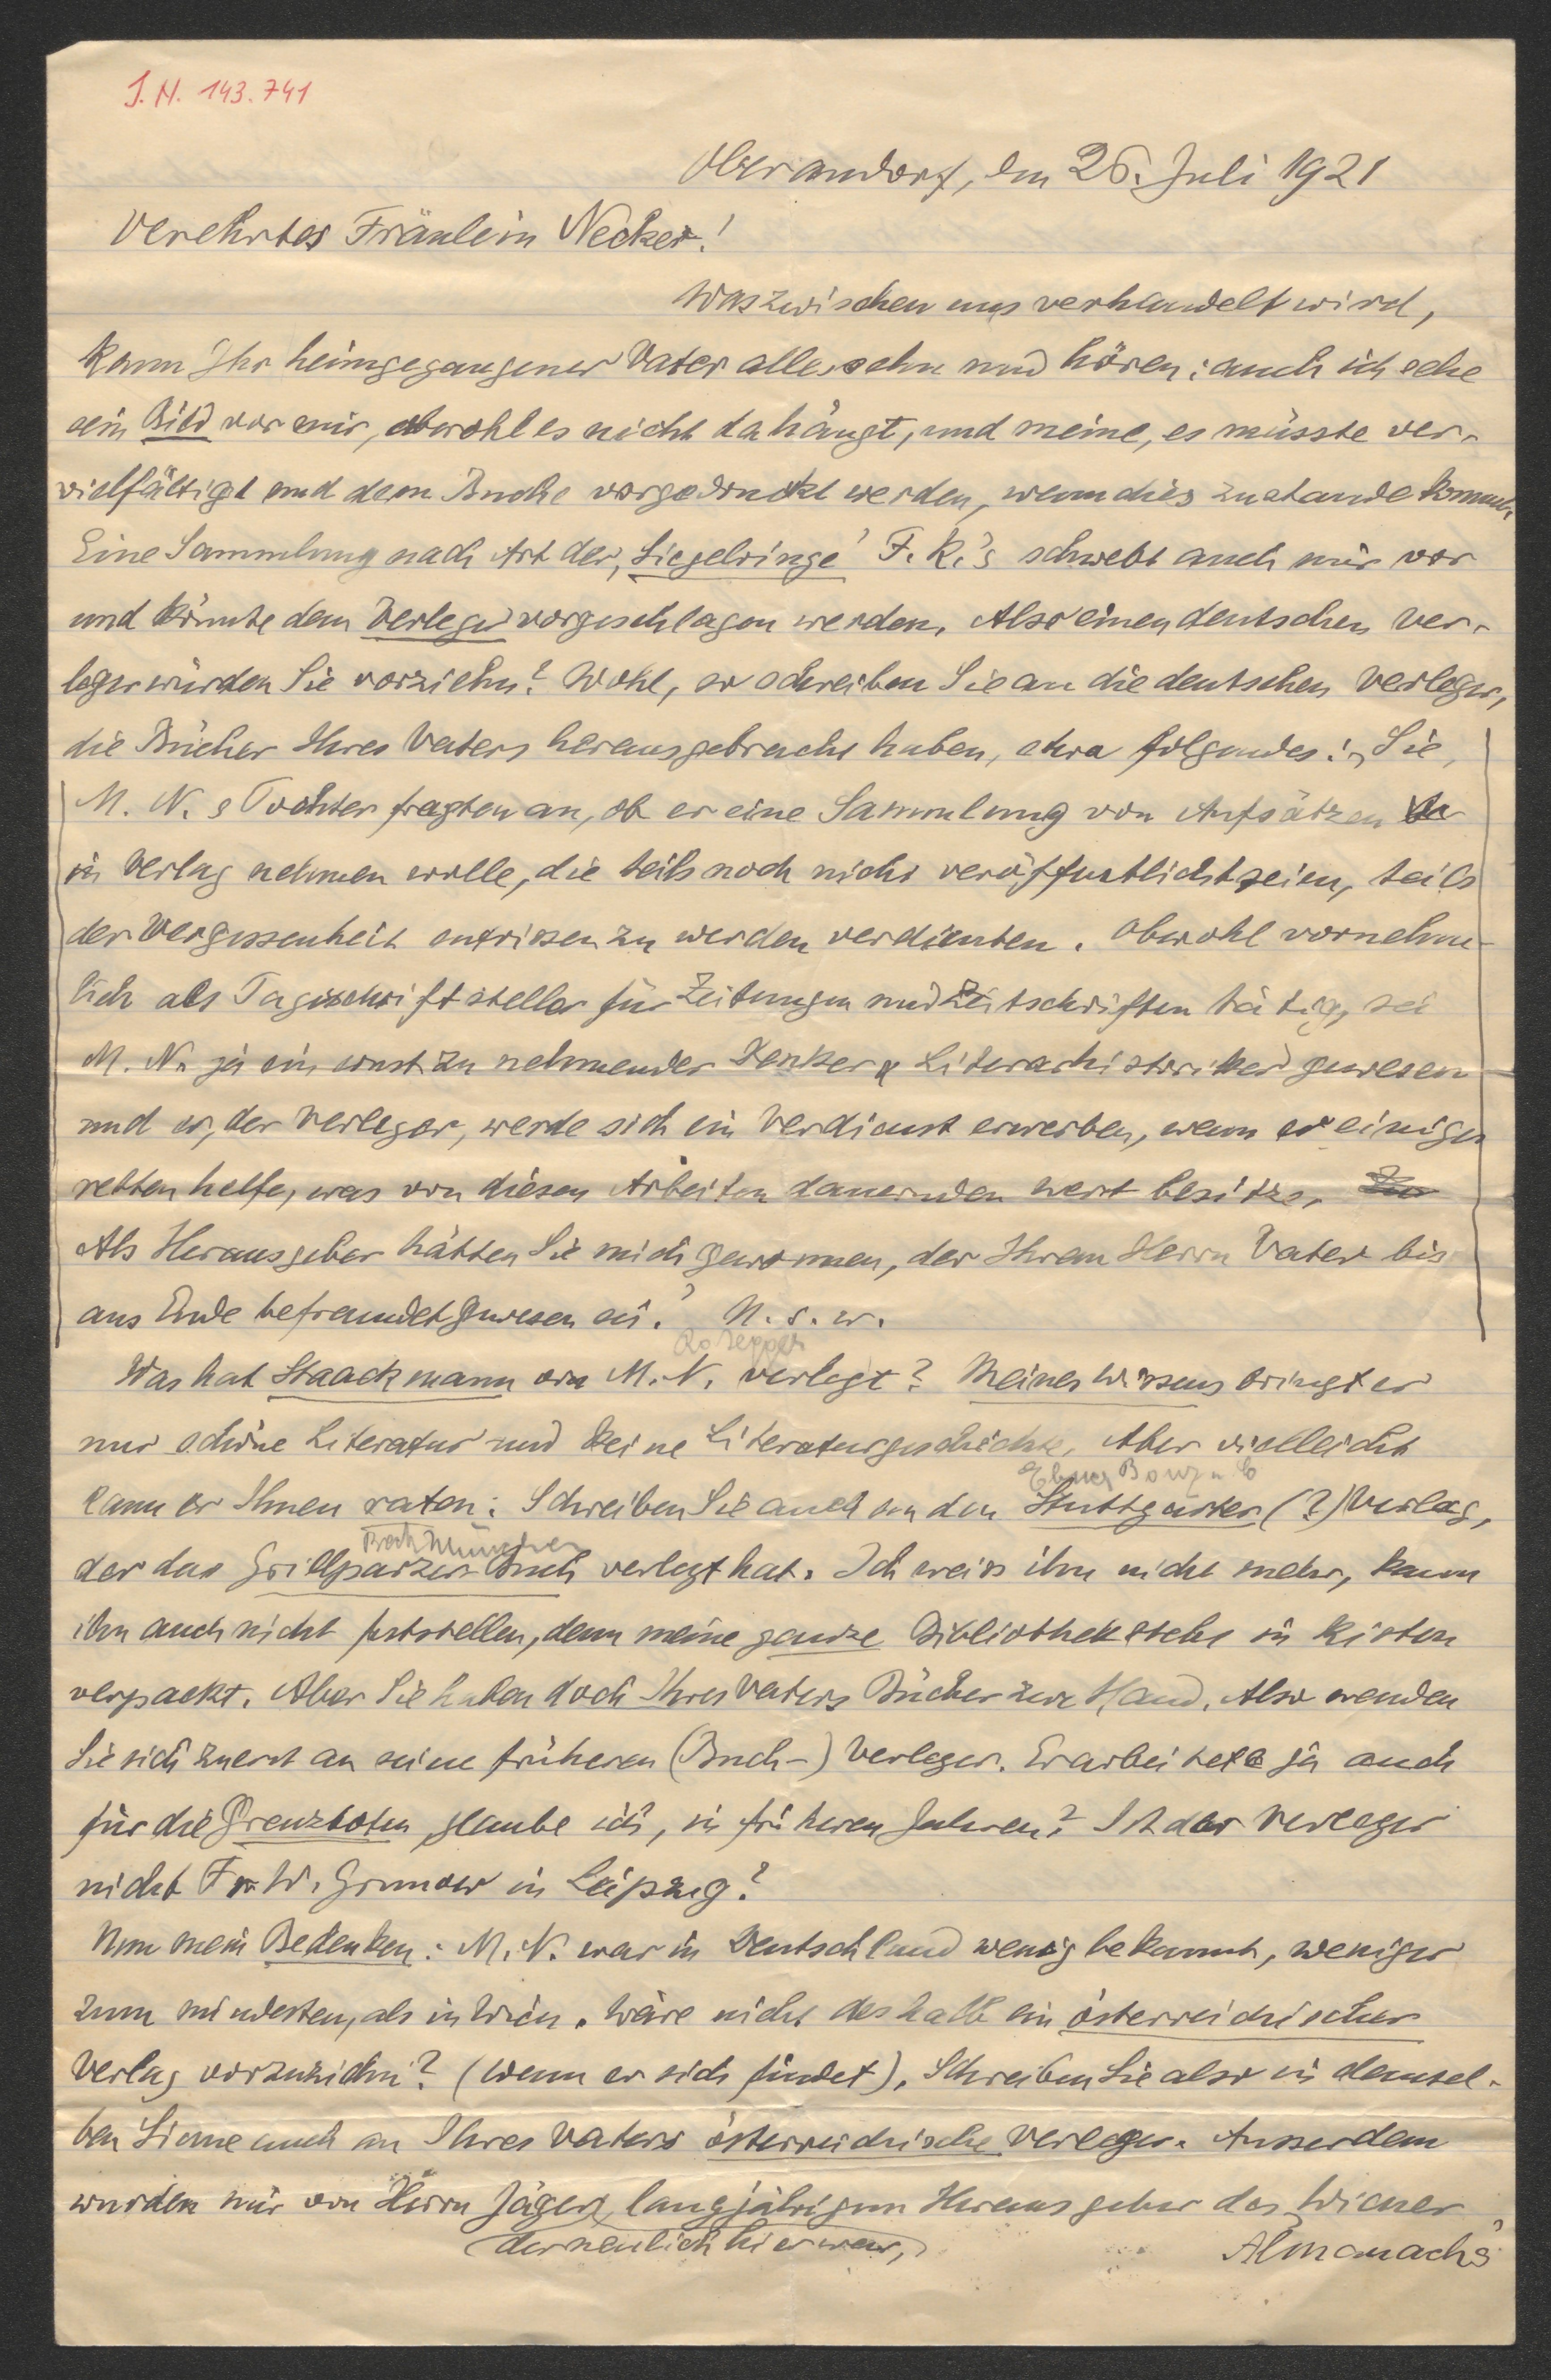 I. N. 143.741
Oberandorf, den 26. Juli 1921
Verehrtes Fräulein Necker!
Was zwischen uns verhandelt wird,
kann Ihr heimgegangener Vater alles sehn und hören: auch ich sehe
sein Bild vor mir, obwohl es nicht da hängt, und meine, es müsste ver-
vielfältigt und dem Buche vorgedruckt werden, wenn dies zustande kommt.
Eine Sammlung nach Art der ‚Siegelringe' F. K.'s schwebt auch mir vor
und könnte dem Verleger vorgeschlagen werden. Also einen deutschen Ver-
leger würden Sie vorziehn? Wohl, so schreiben Sie an die deutschen Verleger,
die Bücher Ihres Vaters herausgebracht haben, etwa folgendes: ‚Sie,
M. N.s Tochter fragten an, ob er eine Sammlung von Aufsätzen
in Verlag nehmen wolle, die teils noch nicht veröffentlicht seien, teils
der Vergessenheit entrissen zu werden verdienten. Obwohl vornehm-
lich als Tagesschriftsteller für Zeitungen und Zeitschriften tätig, sei
M. N. ja ein ernst zu nehmender Denker & Literarhistoriker gewesen
und er, der Verleger, werde sich ein Verdienst erwerben, wenn er einiges
retten helfe, was von diesen Arbeiten dauernden Wert besitze.
Als Herausgeber hätten Sie mich gewonnen, der Ihrem Herrn Vater bis
ans Ende befreundet gewesen sei.' U. s. w.
Rosegger
Was hat Staackmann von M. N. verlegt? Meines Wissens bringt er
nur schöne Literatur und keine Literaturgeschichte. Aber vielleicht
Bonz u. C
kann er Ihnen raten. Schreiben Sie auch an den Stuttgarter (?) Verlag,
München
der das Grillparzer-Buch verlegt hat. Ich weiss ihn nicht mehr, kann
ihn auch nicht feststellen, denn meine ganze Bibliothek steht in Kisten
verpackt. Aber Sie haben doch Ihres Vaters Bücher zur Hand. Also wenden
Sie sich zuerst an seine früheren (Buch-) Verleger. Er arbeitete ja auch
für die Grenzboten, glaube ich, in früheren Jahren? Ist der Verleger
nicht Fr. W. Grunow in Leipzig?
Nun mein Bedenken: M. N. war in Deutschland wenig bekannt, weniger
zum mindesten, als in Wien. Wäre nicht deshalb ein österreichischer
Verlag vorzuziehn? (wenn er sich findet). Schreiben Sie also in demsel-
ben Sinne auch an Ihres Vaters österreichische Verleger. Ausserdem
wurden mir von Herrn Jäger, langjährigem Herausgeber des ‚Wiener
(der neulich hier war,)
Almanachs'